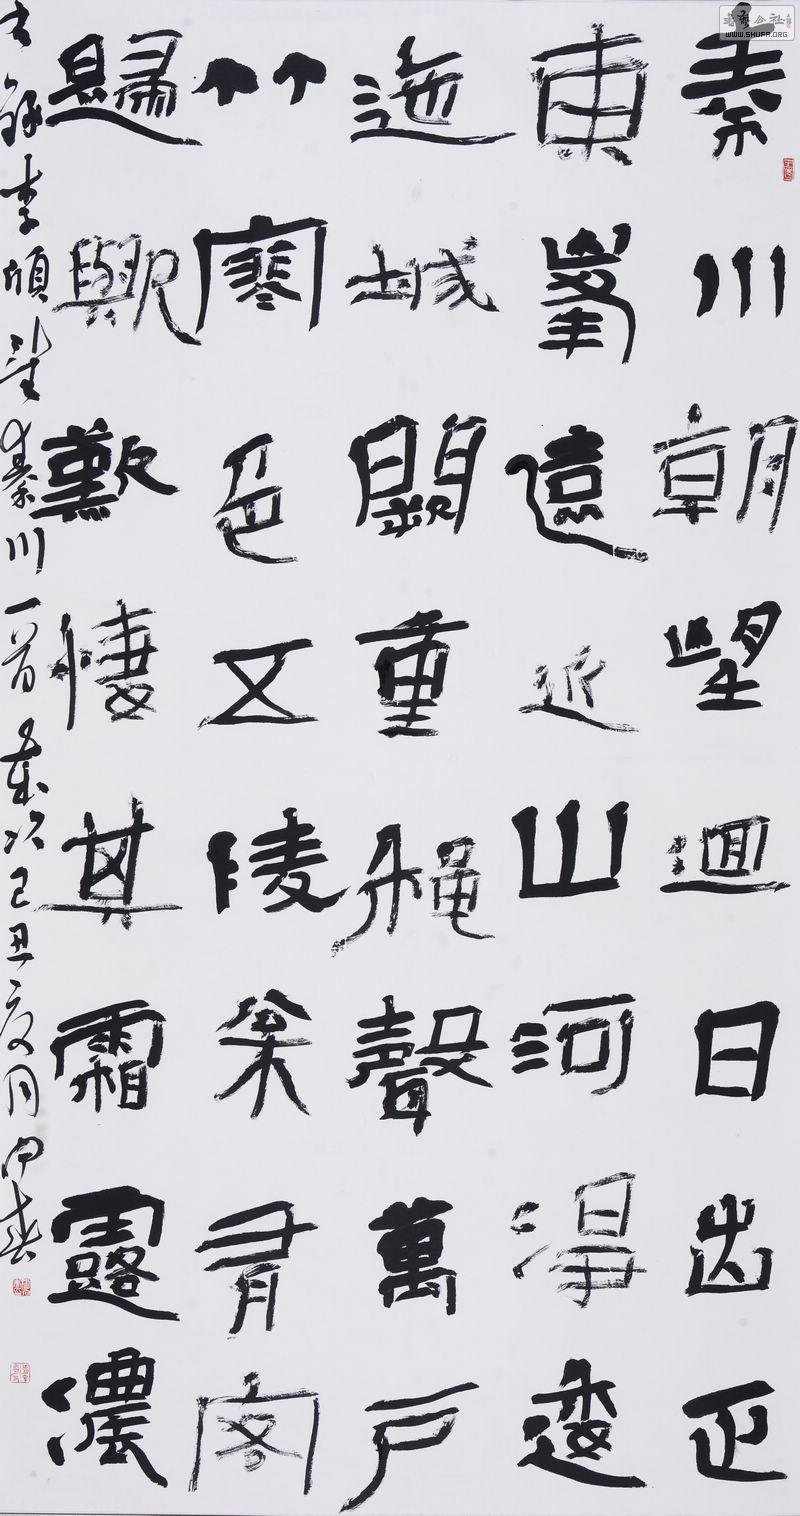 秦川朝望迴日出正
東峯遠近山河淨逶
迤城闕重穐聲萬戶
竹寒色五陵枀有客
歸歟歎悽其霜露濃
錄李頎望秦川一首歲次己丑夏月
书艺公社
WWW.SHUFA.ORG